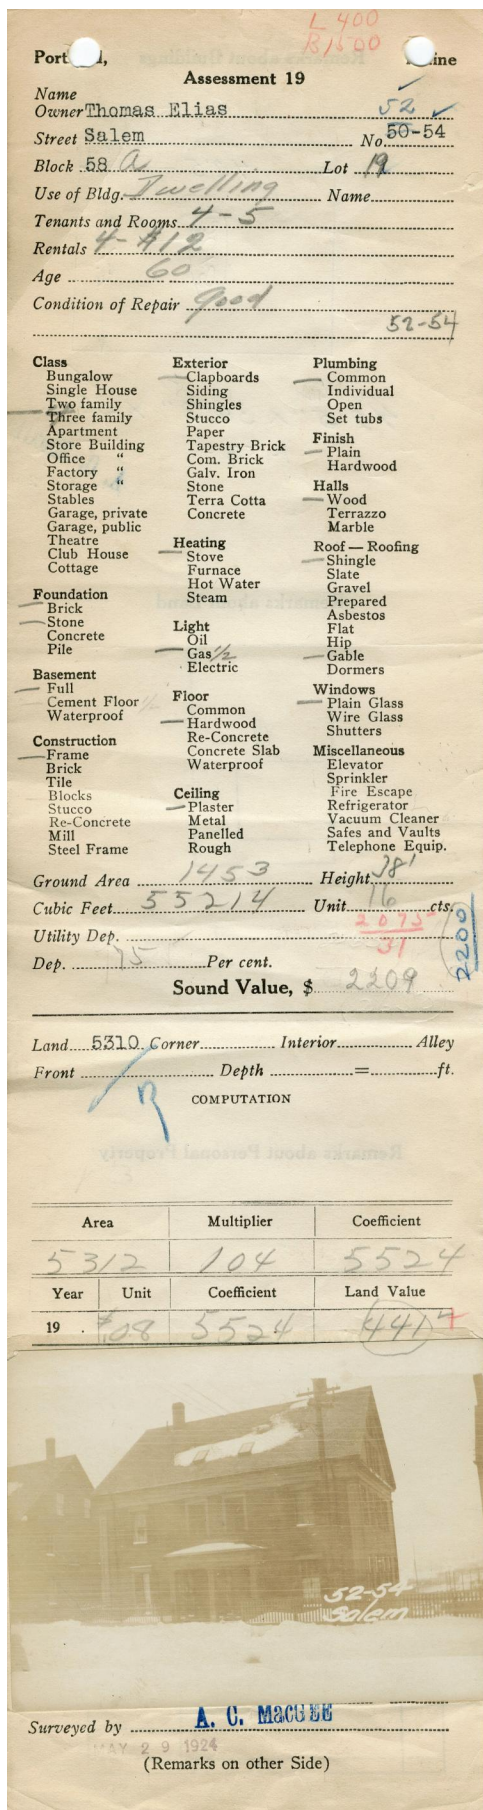 L 400
B 1500
Port d, ine
Assessment 19
Name
Owner Thomas Elias 52
Street Salem No. 50-54
Block 58 a Lot 19
Use of Bldg. Dwelling Name
Tenants and Rooms 4-5
Rentals 4-$12
Age 60
Condition of Repair good
52-54
Class
Bungalow
Single House
Two family
Three family
Apartment
Store Building
Office "
Factory "
Storage "
Stables
Garage, private
Garage, public
Theatre
Club House
Cottage
Foundation
Brick
Stone
Concrete
Pile
Basement
Full
Cement Floor 1/2
Waterproof
Construction
Frame
Brick
Tile
Blocks
Stucco
Re-Concrete
Mill
Steel Frame
Exterior
Clapboards
Siding
Shingles
Stucco
Paper
Tapestry Brick
Com. Brick
Galv. Iron
Stone
Terra Cotta
Concrete
Heating
Stove
Furnace
Hot Water
Steam
Light
Oil
Gas 1/2
Electric
Floor
Common
Hardwood
Re-Concrete
Concrete Slab
Waterproof
Ceiling
Plaster
Metal
Panelled
Rough
Plumbing
Common
Individual
Open
Set tubs
Finish
Plain
Hardwood
Halls
Wood
Terrazzo
Marble
Roof — Roofing
Shingle
Slate
Gravel
Prepared
Asbestos
Flat
Hip
Gable
Dormers
Windows
Plain Glass
Wire Glass
Shutters
Miscellaneous
Elevator
Sprinkler
Fire Escape
Refrigerator
Vacuum Cleaner
Safes and Vaults
Telephone Equip.
Ground Area 1453 Height 38'
Cubic Feet 55214 Unit 16 cts.
2075
Utility Dep.
31
Dep. 75 Per cent.
2200
Sound Value, $ 2209
Land 5310 Corner Interior Alley
Front Depth = ft.
R
COMPUTATION
Area Multiplier Coefficient
5312 104 5524
Year Unit Coefficient Land Value
19 . $.08 5524 441
52-54
Salem
Surveyed by A. C. MacGEE
MAY 29 1924
(Remarks on other Side)